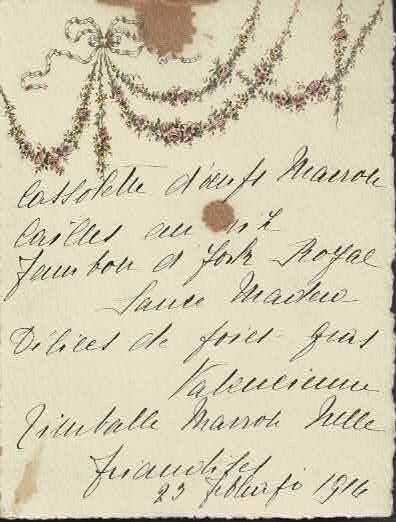 Cassolette d'oeufs Marron
Cailles au
Jambon d'York Royal
Sauce Madere
Délices de foies gras
Valencienne
Timballe Marron Nelle
Friandises
23 1914